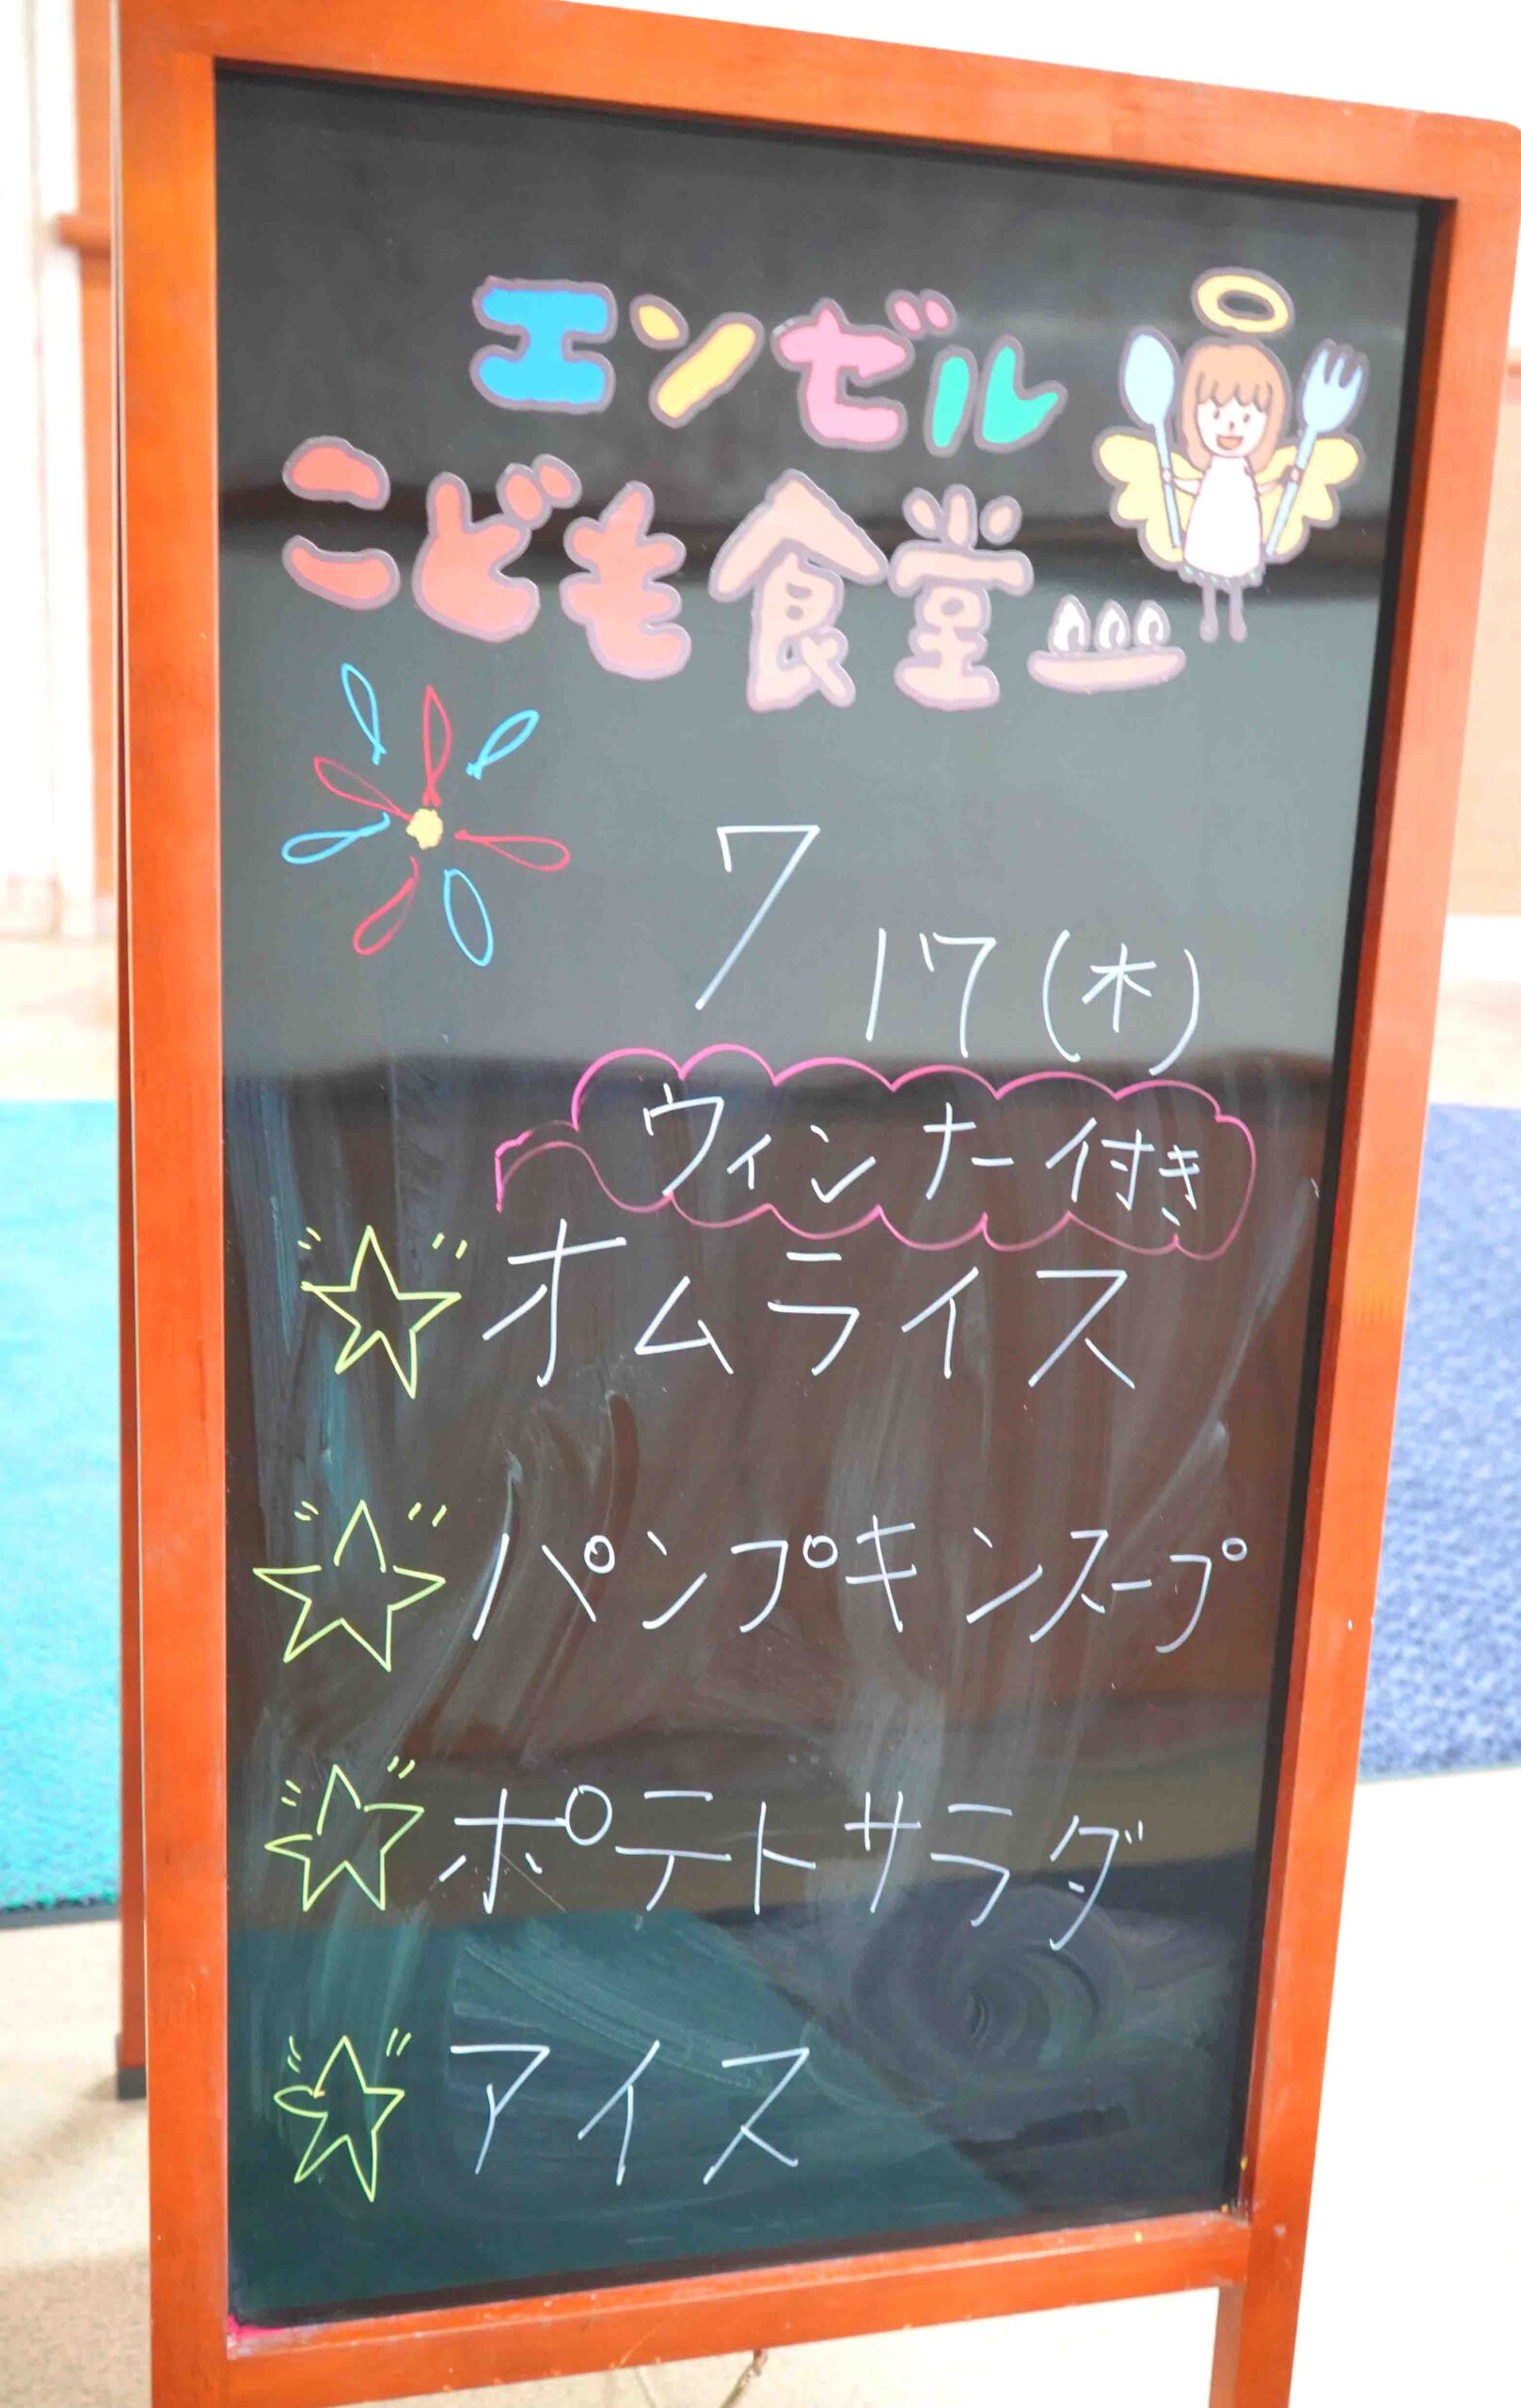 エンゼル
こども食堂
7 17(木)
ウィンナー付き
オムライス
パンプキンスープ
ポテトサラダ
アイス